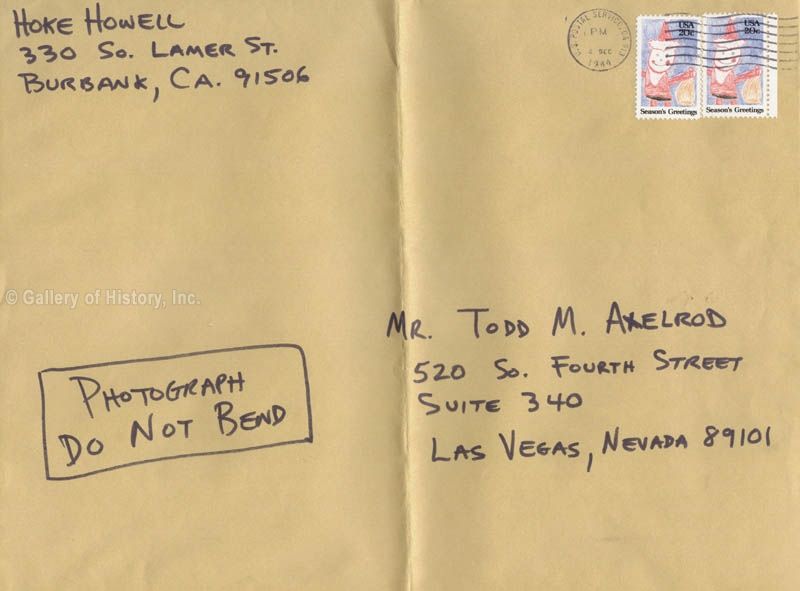 Hoke Howell
330 So. Lamer St.
Burbank, Ca. 91506
PM
USA
20c
Season's Greetings
USA
20c
Season's Greetings
© Gallery of History, Inc.
Mr. Todd M. Axelrod
520 So. Fourth Street
Suite 340
Las Vegas, Nevada 89101
Photograph
Do Not Bend